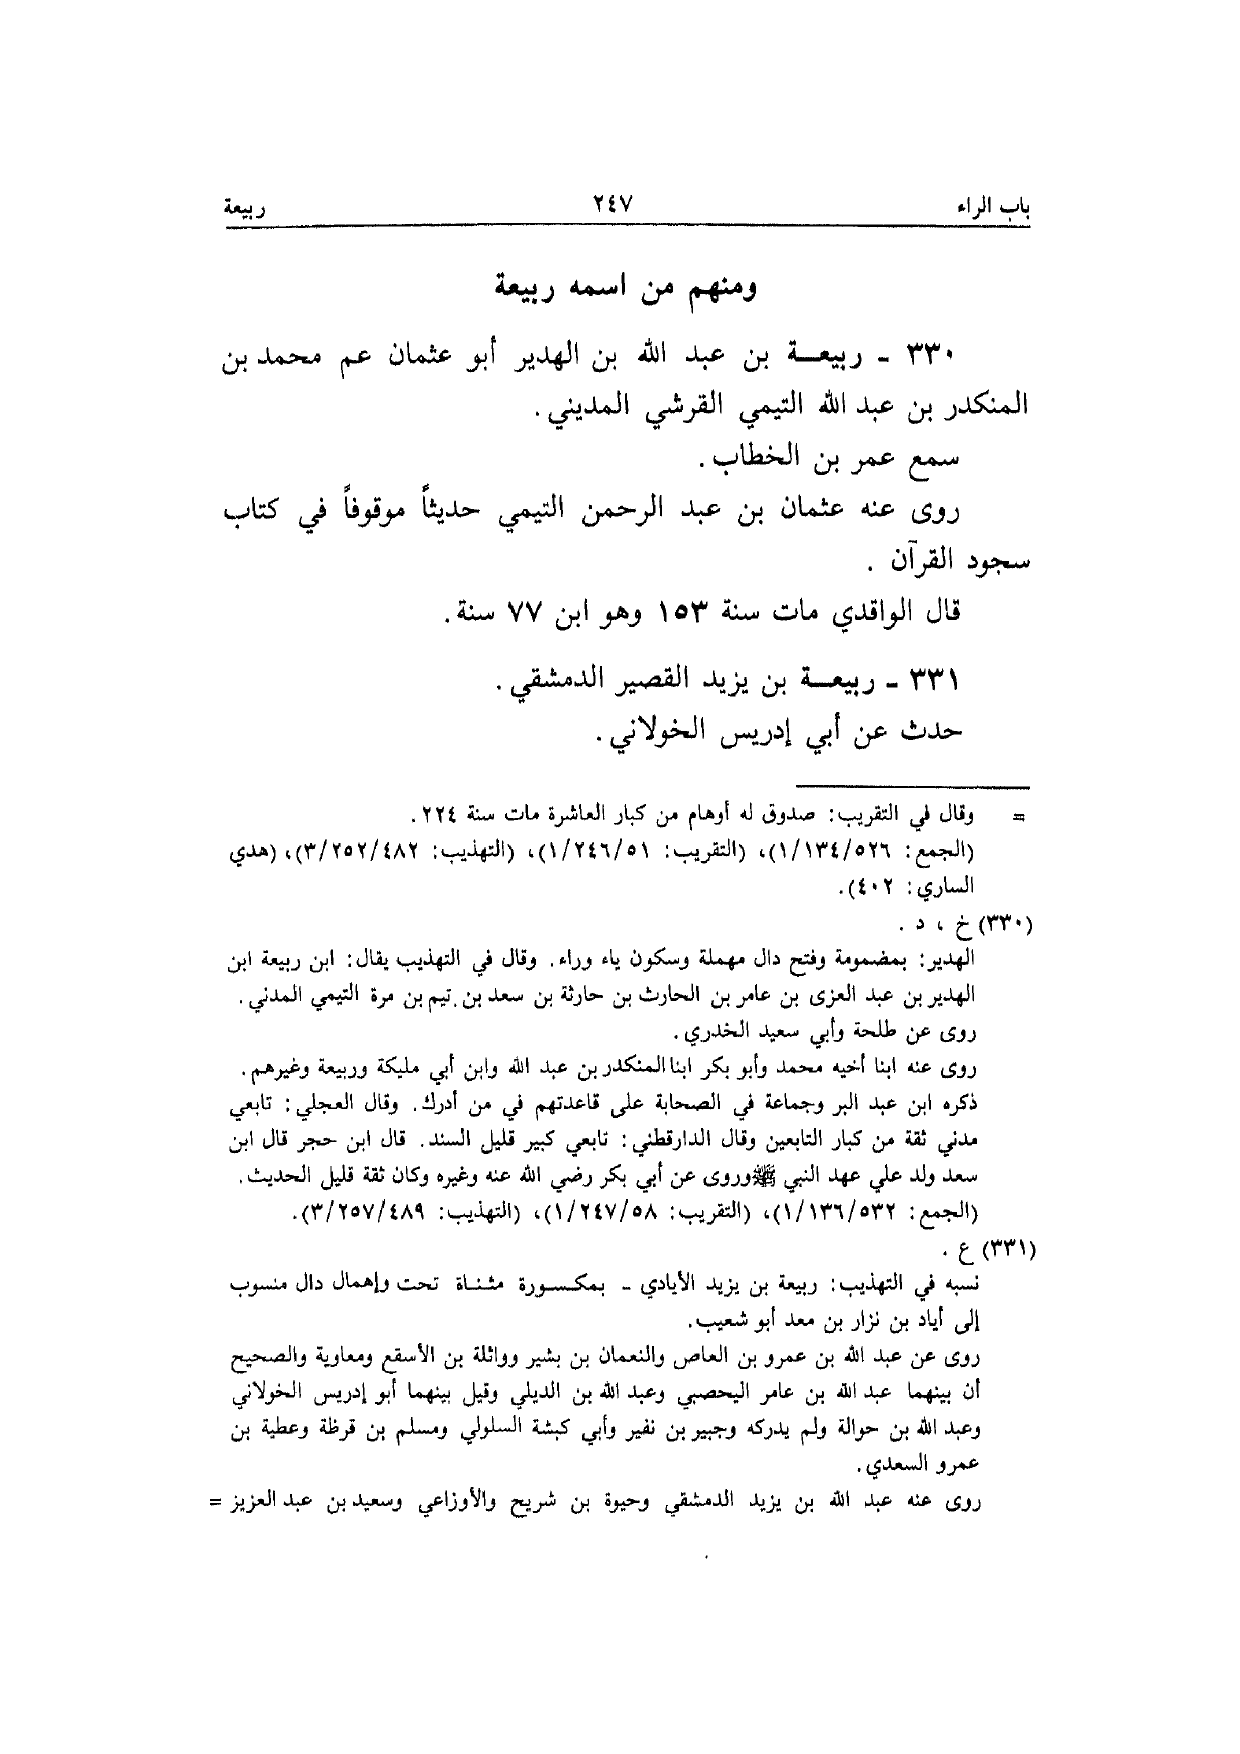 باب الراء ٢٤٧ ربيعة
ومنهم من اسمه ربيعة
٣٣٠ ـ ربيعـــة بن عبد الله بن الهدير أبو عثمان عم محمد بن
المنكدر بن عبد الله التيمي القرشي المديني.
سمع عمر بن الخطاب.
روى عنه عثمان بن عبد الرحمن التيمي حديثاً موقوفاً في كتاب
سجود القرآن .
قال الواقدي مات سنة ١٥٣ وهو ابن ٧٧ سنة.
٣٣١ ـ ربيعـــة بن يزيد القصير الدمشقي.
حدث عن أبي إدريس الخولاني.
= وقال في التقريب: صدوق له أوهام من كبار العاشرة مات سنة ٢٢٤.
(الجمع: ١/١٣٤/٥٢٦)، (التقريب: ١/٢٤٦/٥١)، (التهذيب: ٣/٢٥٢/٤٨٢)، (هدي
الساري: ٤٠٢).
(٣٣٠) خ ، د .
الهدير: بمضمومة وفتح دال مهملة وسكون ياء وراء. وقال في التهذيب يقال: ابن ربيعة ابن
الهدير بن عبد العزى بن عامر بن الحارث بن حارثة بن سعد بن تيم بن مرة التيمي المدني.
روى عن طلحة وأبي سعيد الخدري.
روى عنه ابنا أخيه محمد وأبو بكر ابنا المنكدر بن عبد الله وابن أبي مليكة وربيعة وغيرهم.
ذكره ابن عبد البر وجماعة في الصحابة على قاعدتهم في من أدرك. وقال العجلي: تابعي
مدني ثقة من كبار التابعين وقال الدارقطني: تابعي كبير قليل السند. قال ابن حجر قال ابن
سعد ولد علي عهد النبي ﷺ وروى عن أبي بكر رضي الله عنه وغيره وكان ثقة قليل الحديث.
(الجمع: ١/١٣٦/٥٣٢)، (التقريب: ١/٢٤٧/٥٨)، (التهذيب: ٣/٢٥٧/٤٨٩).
(٣٣١) ع .
نسبه في التهذيب: ربيعة بن يزيد الأيادي ـ بمكـسـورة مثـنـاة تحت وإهمال دال منسوب
إلى أياد بن نزار بن معد أبو شعيب.
روى عن عبد الله بن عمرو بن العاص والنعمان بن بشير وواثلة بن الأسقع ومعاوية والصحيح
أن بينهما عبد الله بن عامر اليحصبي وعبد الله بن الديلي وقيل بينهما أبو إدريس الخولاني
وعبد الله بن حوالة ولم يدركه وجبير بن نفير وأبي كبشة السلولي ومسلم بن قرظة وعطية بن
عمرو السعدي.
روى عنه عبد الله بن يزيد الدمشقي وحيوة بن شريح والأوزاعي وسعيد بن عبد العزيز =